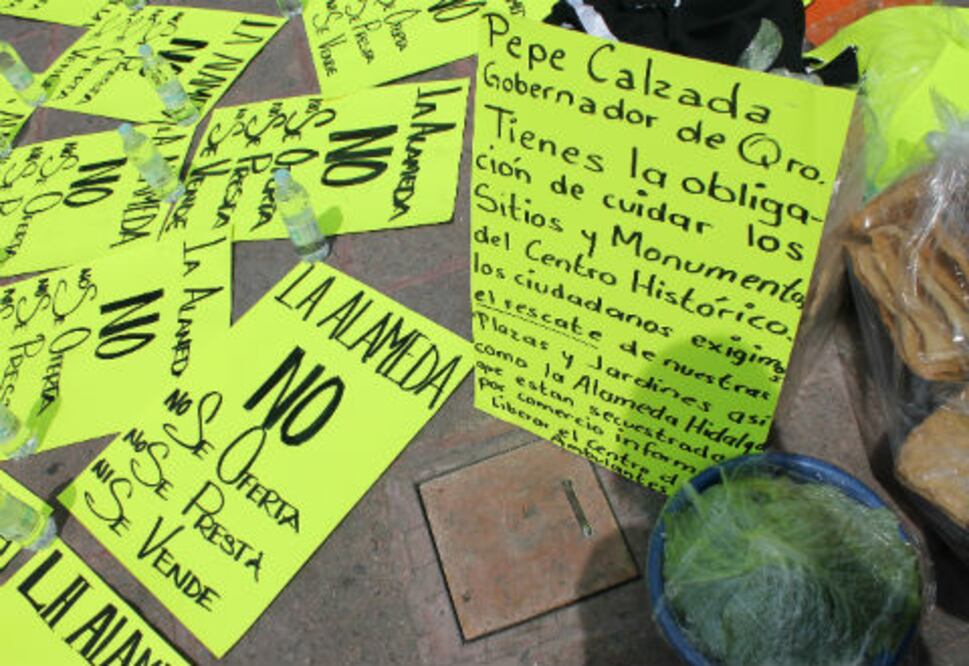 Pepe Calzada
Gobernador de Qro.
Tienes la obliga-
ción de cuidar los
Sitios y Monumento
del Centro Histórico.
los ciudadanos exigim
el rescate de nuestras
Plazas y Jardines así
como la Alameda Hidalgo
que estan secuestrada
por comercio inform
Liberar el Centro d
Ambulantes
LA ALAMEDA
NO
NO SE OFERTA
NO SE PRESTA
NI SE VENDE
LA ALAMEDA
NO
NO SE OFERTA
NO SE PRESTA
NI SE VENDE
LA ALAMED
NO
NO SE OFERTA
NO SE PRES
LA ALAMEDA
NO
NO SE OFERTA
NO
NO SE OFERTA
SE PRESTA
SE VENDE
LA ALAM